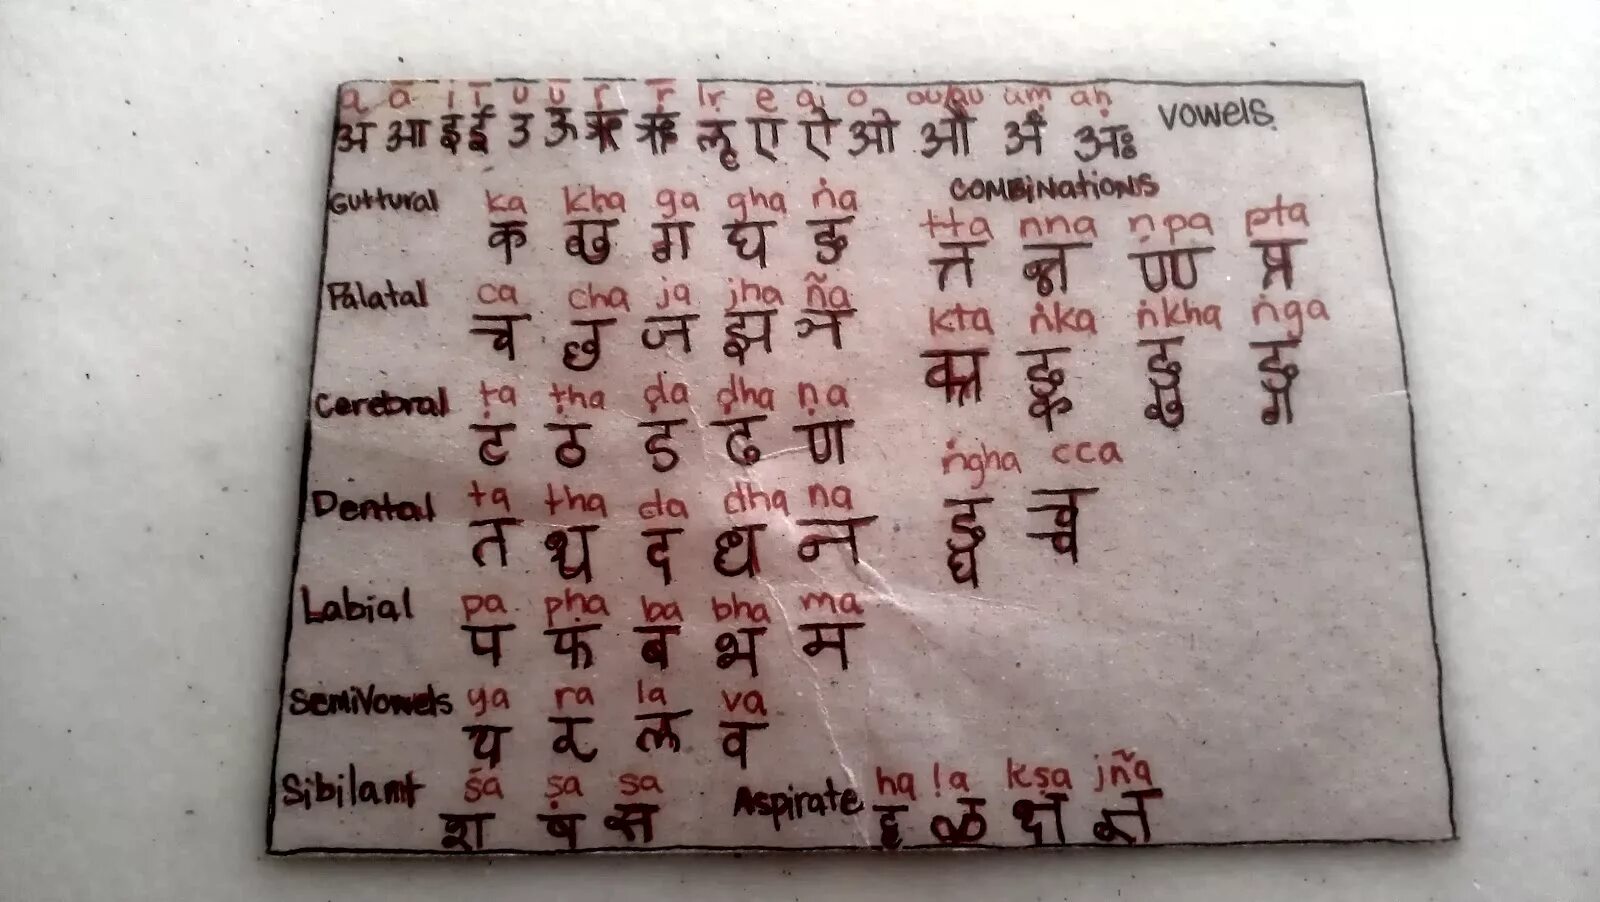 a ā i ī u ū ṛ ṝ lṛ e ai o ou/au aṁ aḥ
अ आ इ ई उ ऊ ऋ ॠ लृ ए ऐ ओ औ अं अः Vowels
Guttural ka kha ga gha ṅa
क ख ग घ ङ
Palatal ca cha ja jha ña
च छ ज झ ञ
Cerebral ṭa ṭha ḍa ḍha ṇa
ट ठ ड ढ ण
Dental ta tha da dha na
त थ द ध न
Labial pa pha ba bha ma
प फ ब भ म
SemiVowels ya ra la va
य र ल व
Sibilant śa ṣa sa
श ष स
Aspirate ha ḷa kṣa jña
ह ळ क्ष ज्ञ
COMBiNAtiONS
tta nna ṇpa pta
त्त न्न प्त
kta ṅka ṅkha ṅga
क्त ङ्क ङ्ख ङ्ग
ṅgha cca
ङ्घ च्च